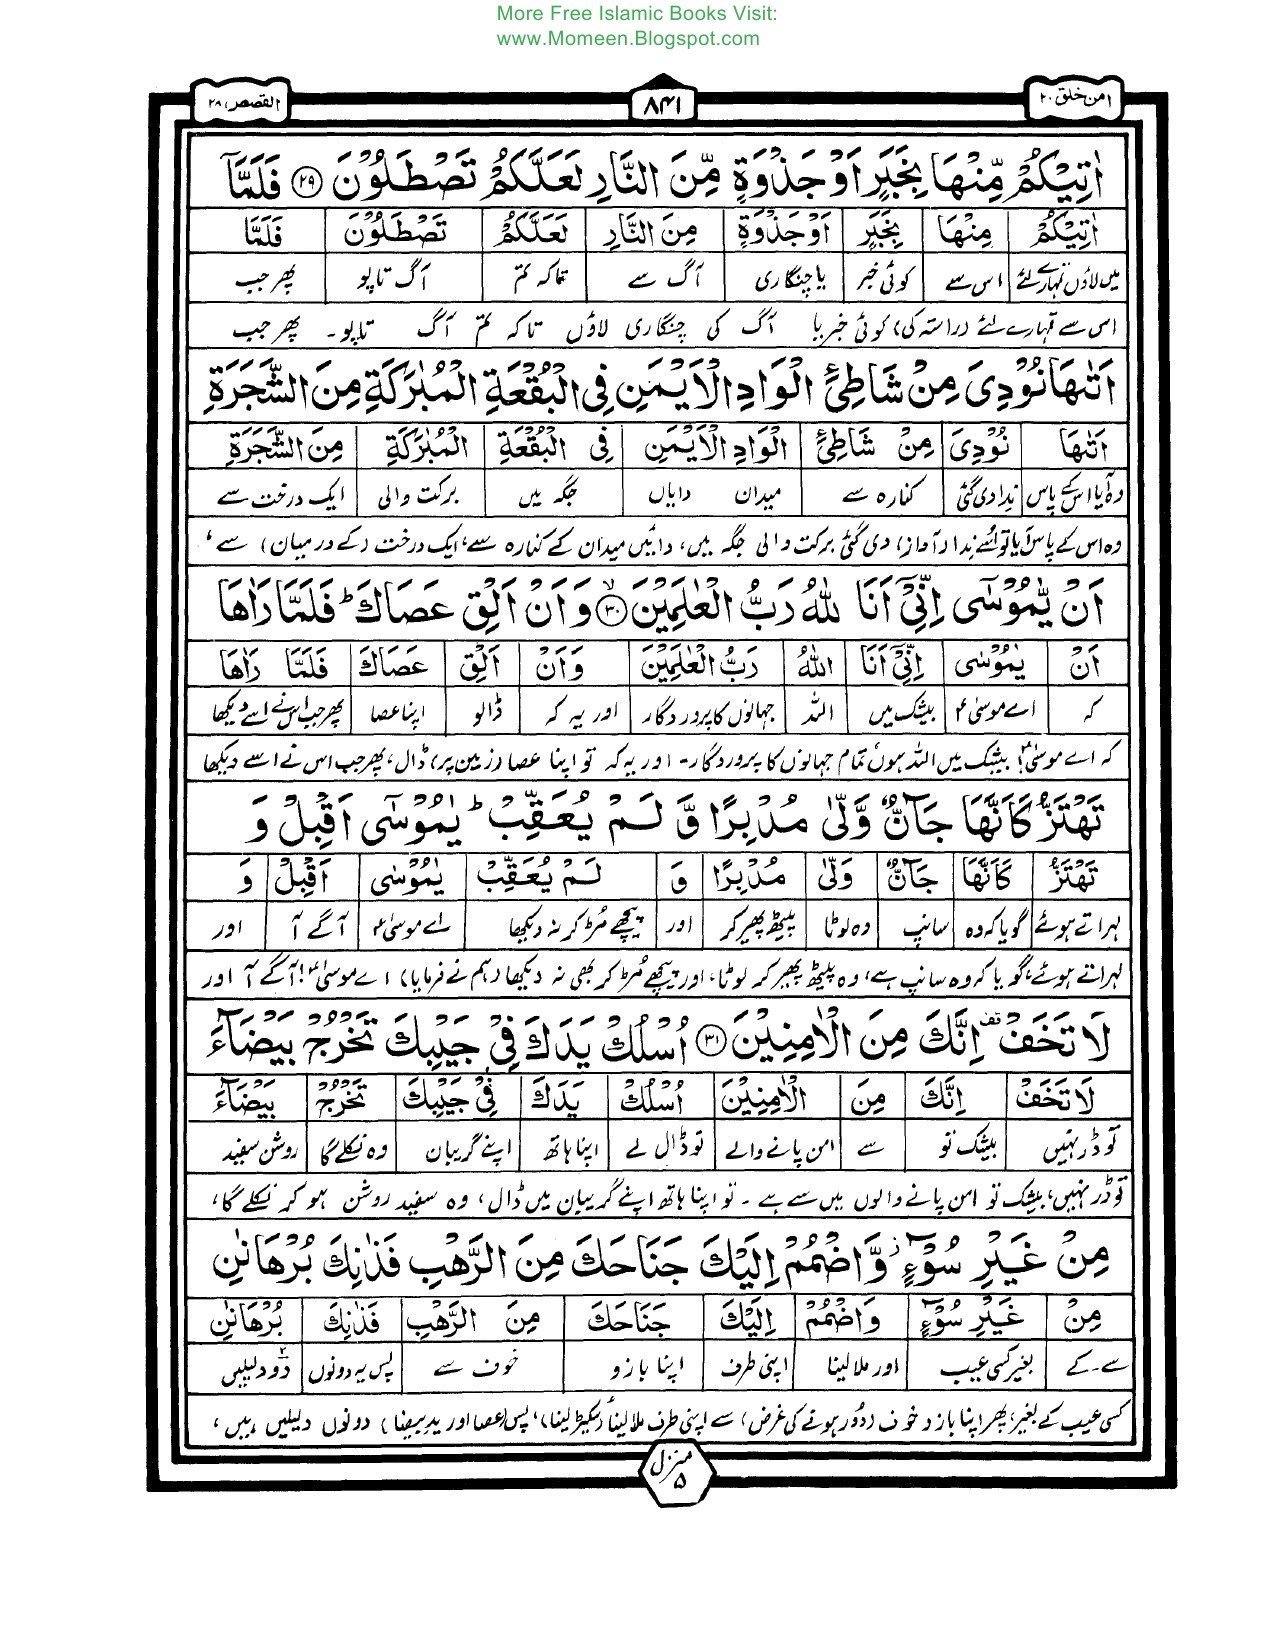 More Free Islamic Books Visit:
www.Momeen.Blogspot.com
امن خلق ۲۰
۸۴۱
القصص ۲۸
اٰتِیْكُمْ مِّنْهَا بِخَبَرٍ اَوْ جَذْوَةٍ مِّنَ النَّارِ لَعَلَّكُمْ تَصْطَلُوْنَ ۲۹ فَلَمَّاۤ
اٰتِیْكُمْ مِنْهَا بِخَبَرٍ اَوْ جَذْوَةٍ مِنَ النَّارِ لَعَلَّكُمْ تَصْطَلُوْنَ فَلَمَّا
میں لاؤں تمہارے لئے اس سے کوئی خبر یا چنگاری آگ سے تاکہ تم آگ تاپو پھر جب
اس سے تمہارے لئے (راستہ کی) کوئی خبر یا آگ کی چنگاری لاؤں تاکہ تم آگ تاپو۔ پھر جب
اَتٰىهَا نُوْدِیَ مِنْ شَاطِئِ الْوَادِ الْاَیْمَنِ فِی الْبُقْعَةِ الْمُبٰرَكَةِ مِنَ الشَّجَرَةِ
اَتٰىهَا نُوْدِیَ مِنْ شَاطِئِ الْوَادِ الْاَیْمَنِ فِی الْبُقْعَةِ الْمُبٰرَكَةِ مِنَ الشَّجَرَةِ
وہ آیا اس کے پاس ندا دی گئی کنارہ سے میدان دایاں جگہ میں برکت والی ایک درخت سے
وہ اس کے پاس آیا تو اسے ندا (آواز) دی گئی برکت والی جگہ میں، دائیں میدان کے کنارہ سے، ایک درخت (کے درمیان) سے،
اَنْ یّٰمُوْسٰۤی اِنِّیْۤ اَنَا اللّٰهُ رَبُّ الْعٰلَمِیْنَ ۳۰ وَ اَنْ اَلْقِ عَصَاكَ ؕ فَلَمَّا رَاٰهَا
اَنْ یٰمُوْسٰۤی اِنِّیْۤ اَنَا اللّٰهُ رَبُّ الْعٰلَمِیْنَ وَ اَنْ اَلْقِ عَصَاكَ فَلَمَّا رَاٰهَا
کہ اے موسیٰؑ بیشک میں اللہ جہانوں کا پروردگار اور یہ کہ ڈالو اپنا عصا پھر جب اس نے اسے دیکھا
کہ اے موسیٰؑ! بیشک میں اللہ ہوں تمام جہانوں کا پروردگار۔ اور یہ کہ تو اپنا عصا (زمین پر) ڈال، پھر جب اس نے اسے دیکھا
تَهْتَزُّ كَاَنَّهَا جَآنٌّ وَّلّٰی مُدْبِرًا وَّ لَمْ یُعَقِّبْ ؕ یٰمُوْسٰۤی اَقْبِلْ وَ
تَهْتَزُّ كَاَنَّهَا جَآنٌّ وَلّٰی مُدْبِرًا وَّ لَمْ یُعَقِّبْ یٰمُوْسٰۤی اَقْبِلْ وَ
لہراتے ہوئے گویا کہ وہ سانپ وہ لوٹا پیٹھ پھیر کر اور پیچھے مڑ کر نہ دیکھا اے موسیٰؑ آگے آ اور
لہراتے ہوئے، گویا کہ وہ سانپ ہے، وہ پیٹھ پھیر کر لوٹا، اور پیچھے مڑ کر بھی نہ دیکھا (ہم نے فرمایا) اے موسیٰؑ! آگے آ اور
لَا تَخَفْ ۫ اِنَّكَ مِنَ الْاٰمِنِیْنَ ۳۱ اُسْلُكْ یَدَكَ فِیْ جَیْبِكَ تَخْرُجْ بَیْضَآءَ
لَا تَخَفْ اِنَّكَ مِنَ الْاٰمِنِیْنَ اُسْلُكْ یَدَكَ فِیْ جَیْبِكَ تَخْرُجْ بَیْضَآءَ
تو ڈر نہیں بیشک تو سے امن پانے والے تو ڈال لے اپنا ہاتھ اپنے گریبان وہ نکلے گا روشن سفید
تو ڈر نہیں، بیشک تو امن پانے والوں میں سے ہے ۔ تو اپنا ہاتھ اپنے گریبان میں ڈال، وہ سفید روشن ہو کر نکلے گا،
مِنْ غَیْرِ سُوْٓءٍ ؗ وَّ اضْمُمْ اِلَیْكَ جَنَاحَكَ مِنَ الرَّهْبِ فَذٰنِكَ بُرْهَانٰنِ
مِنْ غَیْرِ سُوْٓءٍ وَاضْمُمْ اِلَیْكَ جَنَاحَكَ مِنَ الرَّهْبِ فَذٰنِكَ بُرْهَانٰنِ
سے۔کے بغیر کسی عیب اور ملا لینا اپنی طرف اپنا بازو خوف سے پس یہ دونوں دو دلیلیں
کسی عیب کے بغیر، پھر اپنا بازو خوف (دور ہونے کی غرض) سے اپنی طرف ملا لینا (سکیڑ لینا)، پس (عصا اور ید بیضا) دونوں دلیلیں ہیں،
منزل ۵